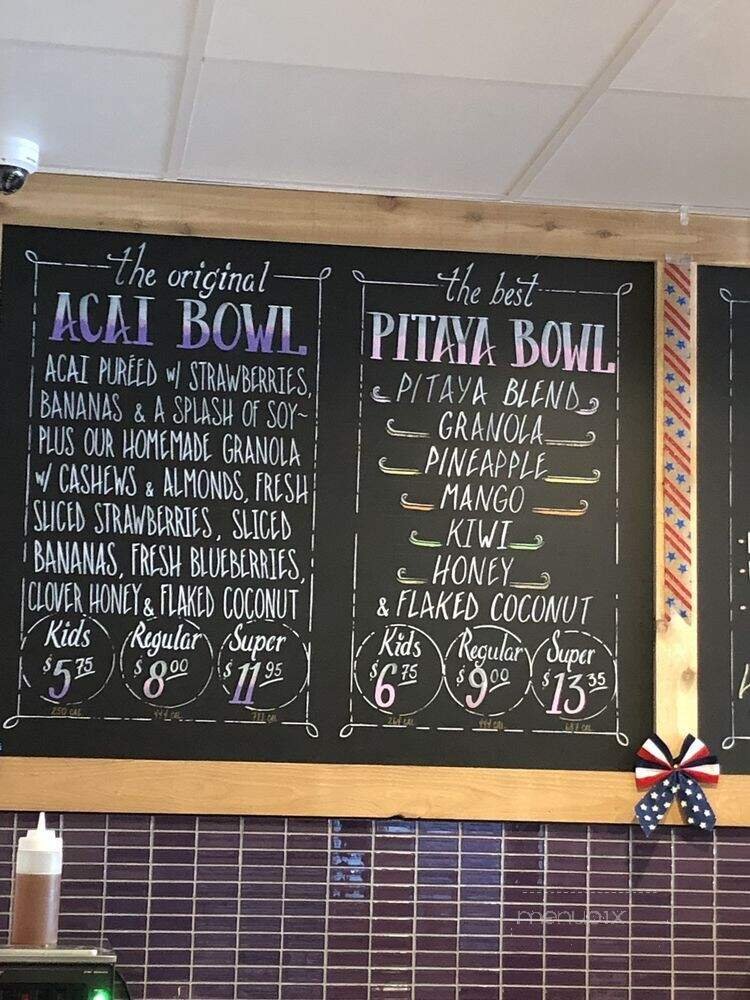 the original
ACAI BOWL
ACAI PURÉED w/ STRAWBERRIES,
BANANAS & A SPLASH OF SOY~
PLUS OUR HOMEMADE GRANOLA
w/ CASHEWS & ALMONDS, FRESH
SLICED STRAWBERRIES, SLICED
BANANAS, FRESH BLUEBERRIES,
CLOVER HONEY & FLAKED COCONUT
Kids Regular Super
$5.75 $8.00 $11.95
250 CAL 444 CAL
the best
PITAYA BOWL
PITAYA BLEND
GRANOLA
PINEAPPLE
MANGO
KIWI
HONEY
& FLAKED COCONUT
Kids Regular Super
$6.75 $9.00 $13.35
264 CAL 444 CAL
menupix